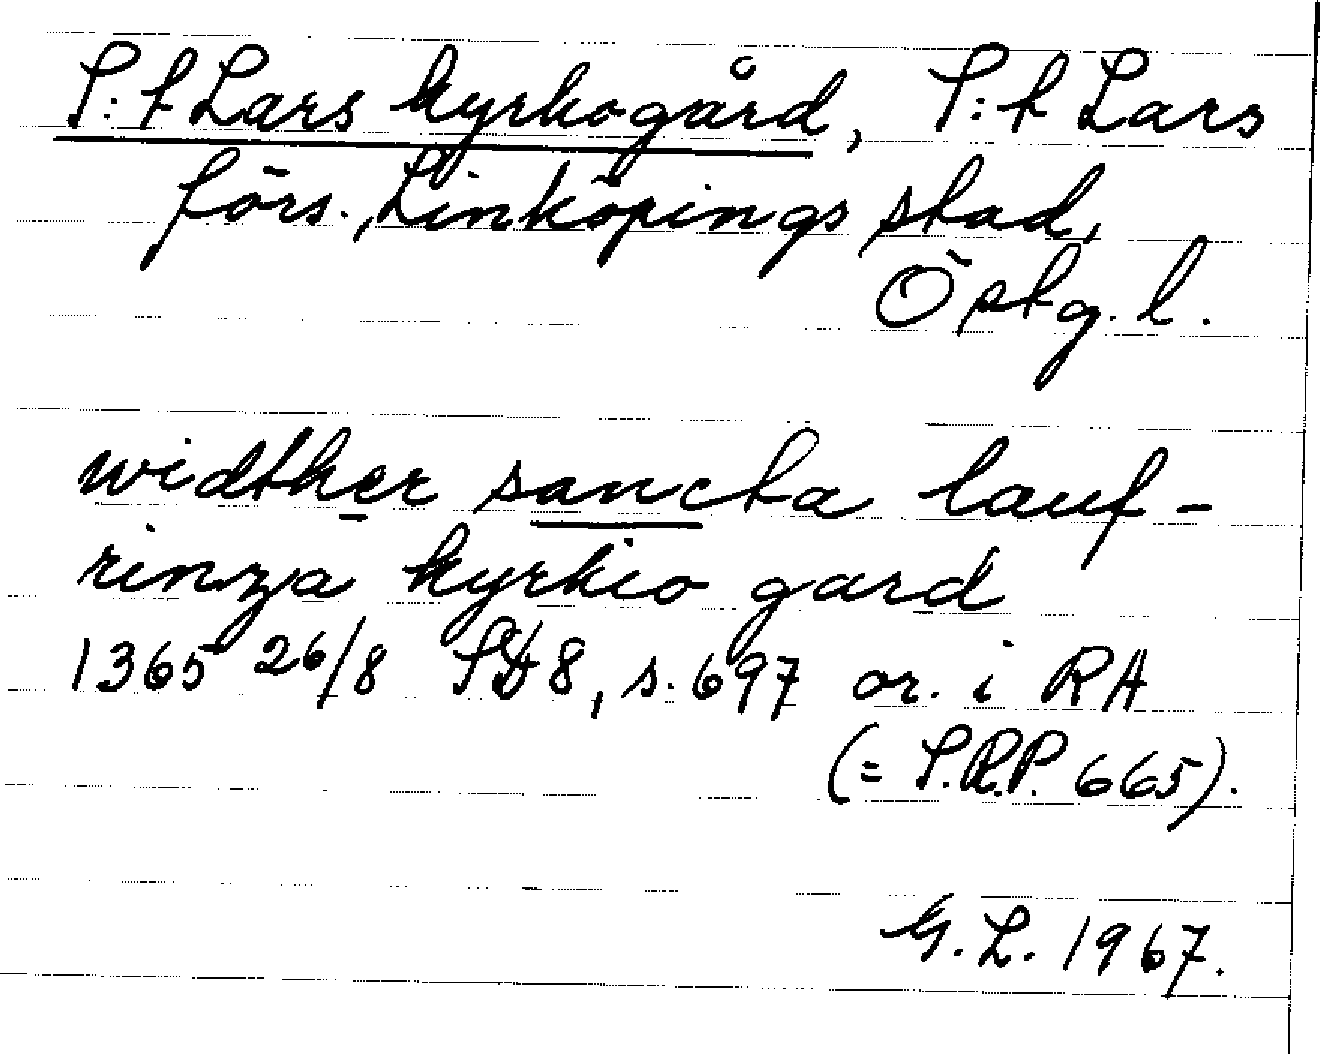 S:t Lars kyrkogård, S:t Lars
förs., Linköpings stad,
Östg. l.
widther sancta lauf-
rinza kyrkio gard
1365 26/8 SD 8, s. 697 or. i RA
(= S.R.P. 665).
G. L. 1967.